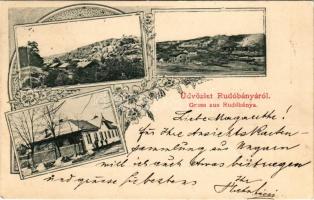 Üdvözlet Rudóbányáról.
Gruss aus Rudóbánya.
Liebe Margarethe!
Für Ihre Ansichts Karten-
Sammlung aus Ungarn
will ich auch etwas beitragen
und grüsse bestens
Ihr